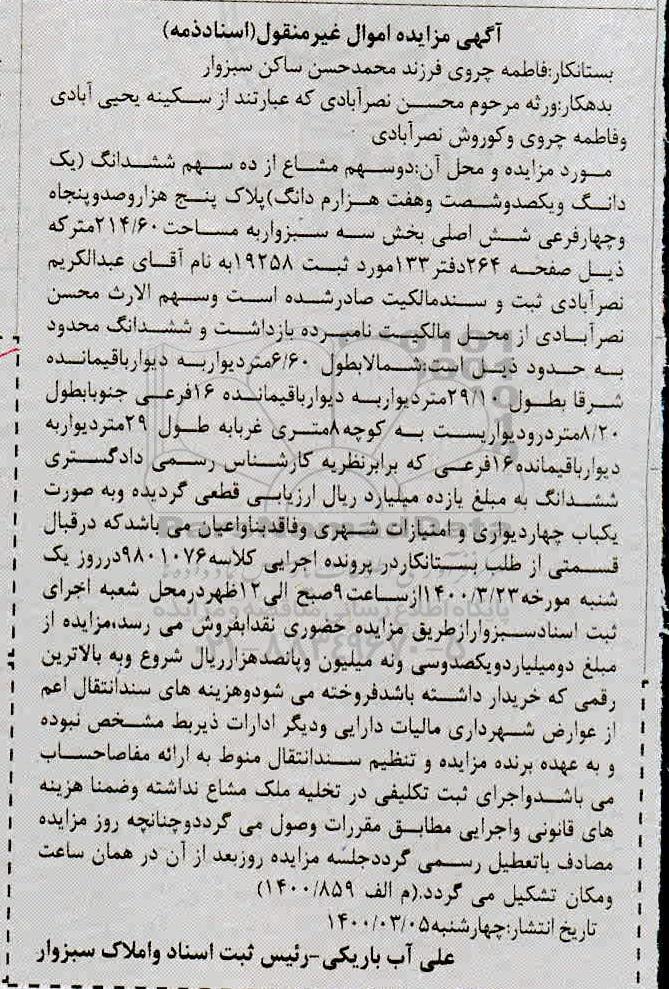 آگهی مزایده اموال غیرمنقول(اسنادذمه)
بستانکار:فاطمه چروی فرزند محمدحسن ساکن سبزوار
بدهکار:ورثه مرحوم محسن نصرآبادی که عبارتند از سکینه یحیی آبادی
وفاطمه چروی وکوروش نصرآبادی
مورد مزایده و محل آن:دوسهم مشاع از ده سهم ششدانگ (یک
دانگ ویکصدوشصت وهفت هزارم دانگ)پلاک پنج هزاروصدوپنجاه
وچهارفرعی شش اصلی بخش سه سبزواربه مساحت۲۱۴/۶۰مترکه
ذیل صفحه ۲۶۴دفتر۱۳۳مورد ثبت ۱۹۲۵۸به نام آقای عبدالکریم
نصرآبادی ثبت و سندمالکیت صادرشده است وسهم الارث محسن
نصرآبادی از محل مالکیت نامبرده بازداشت و ششدانگ محدود
به حدود ذیل است:شمالابطول ۶/۶۰متردیواربه دیوارباقیمانده
شرقا بطول ۲۹/۱۰متردیواربه دیوارباقیمانده ۱۶فرعی جنوبابطول
۸/۲۰متردرودیواریست به کوچه۸متری غربابه طول ۲۹متردیواربه
دیوارباقیمانده۱۶فرعی که برابرنظریه کارشناس رسمی دادگستری
ششدانگ به مبلغ یازده میلیارد ریال ارزیابی قطعی گردیده وبه صورت
یکباب چهاردیواری و امتیازات شهری وفاقدبناواعیان می باشدکه درقبال
قسمتی از طلب بستانکاردر پرونده اجرایی کلاسه۹۸۰۱۰۷۶درروز یک
شنبه مورخه۱۴۰۰/۳/۲۳ازساعت۹صبح الی۱۲ظهردرمحل شعبه اجرای
ثبت اسنادسبزوارازطریق مزایده حضوری نقدابفروش می رسد،مزایده از
مبلغ دومیلیاردویکصدوسی ونه میلیون وپانصدهزارریال شروع وبه بالاترین
رقمی که خریدار داشته باشدفروخته می شودوهزینه های سندانتقال اعم
از عوارض شهرداری مالیات دارایی ودیگر ادارات ذیربط مشخص نبوده
و به عهده برنده مزایده و تنظیم سندانتقال منوط به ارائه مفاصاحساب
می باشدواجرای ثبت تکلیفی در تخلیه ملک مشاع نداشته وضمنا هزینه
های قانونی واجرایی مطابق مقررات وصول می گرددوچنانچه روز مزایده
مصادف باتعطیل رسمی گرددجلسه مزایده روزبعد از آن در همان ساعت
ومکان تشکیل می گردد.(م الف ۱۴۰۰/۸۵۹)
تاریخ انتشار:چهارشنبه۱۴۰۰/۰۳/۰۵
علی آب باریکی-رئیس ثبت اسناد واملاک سبزوار